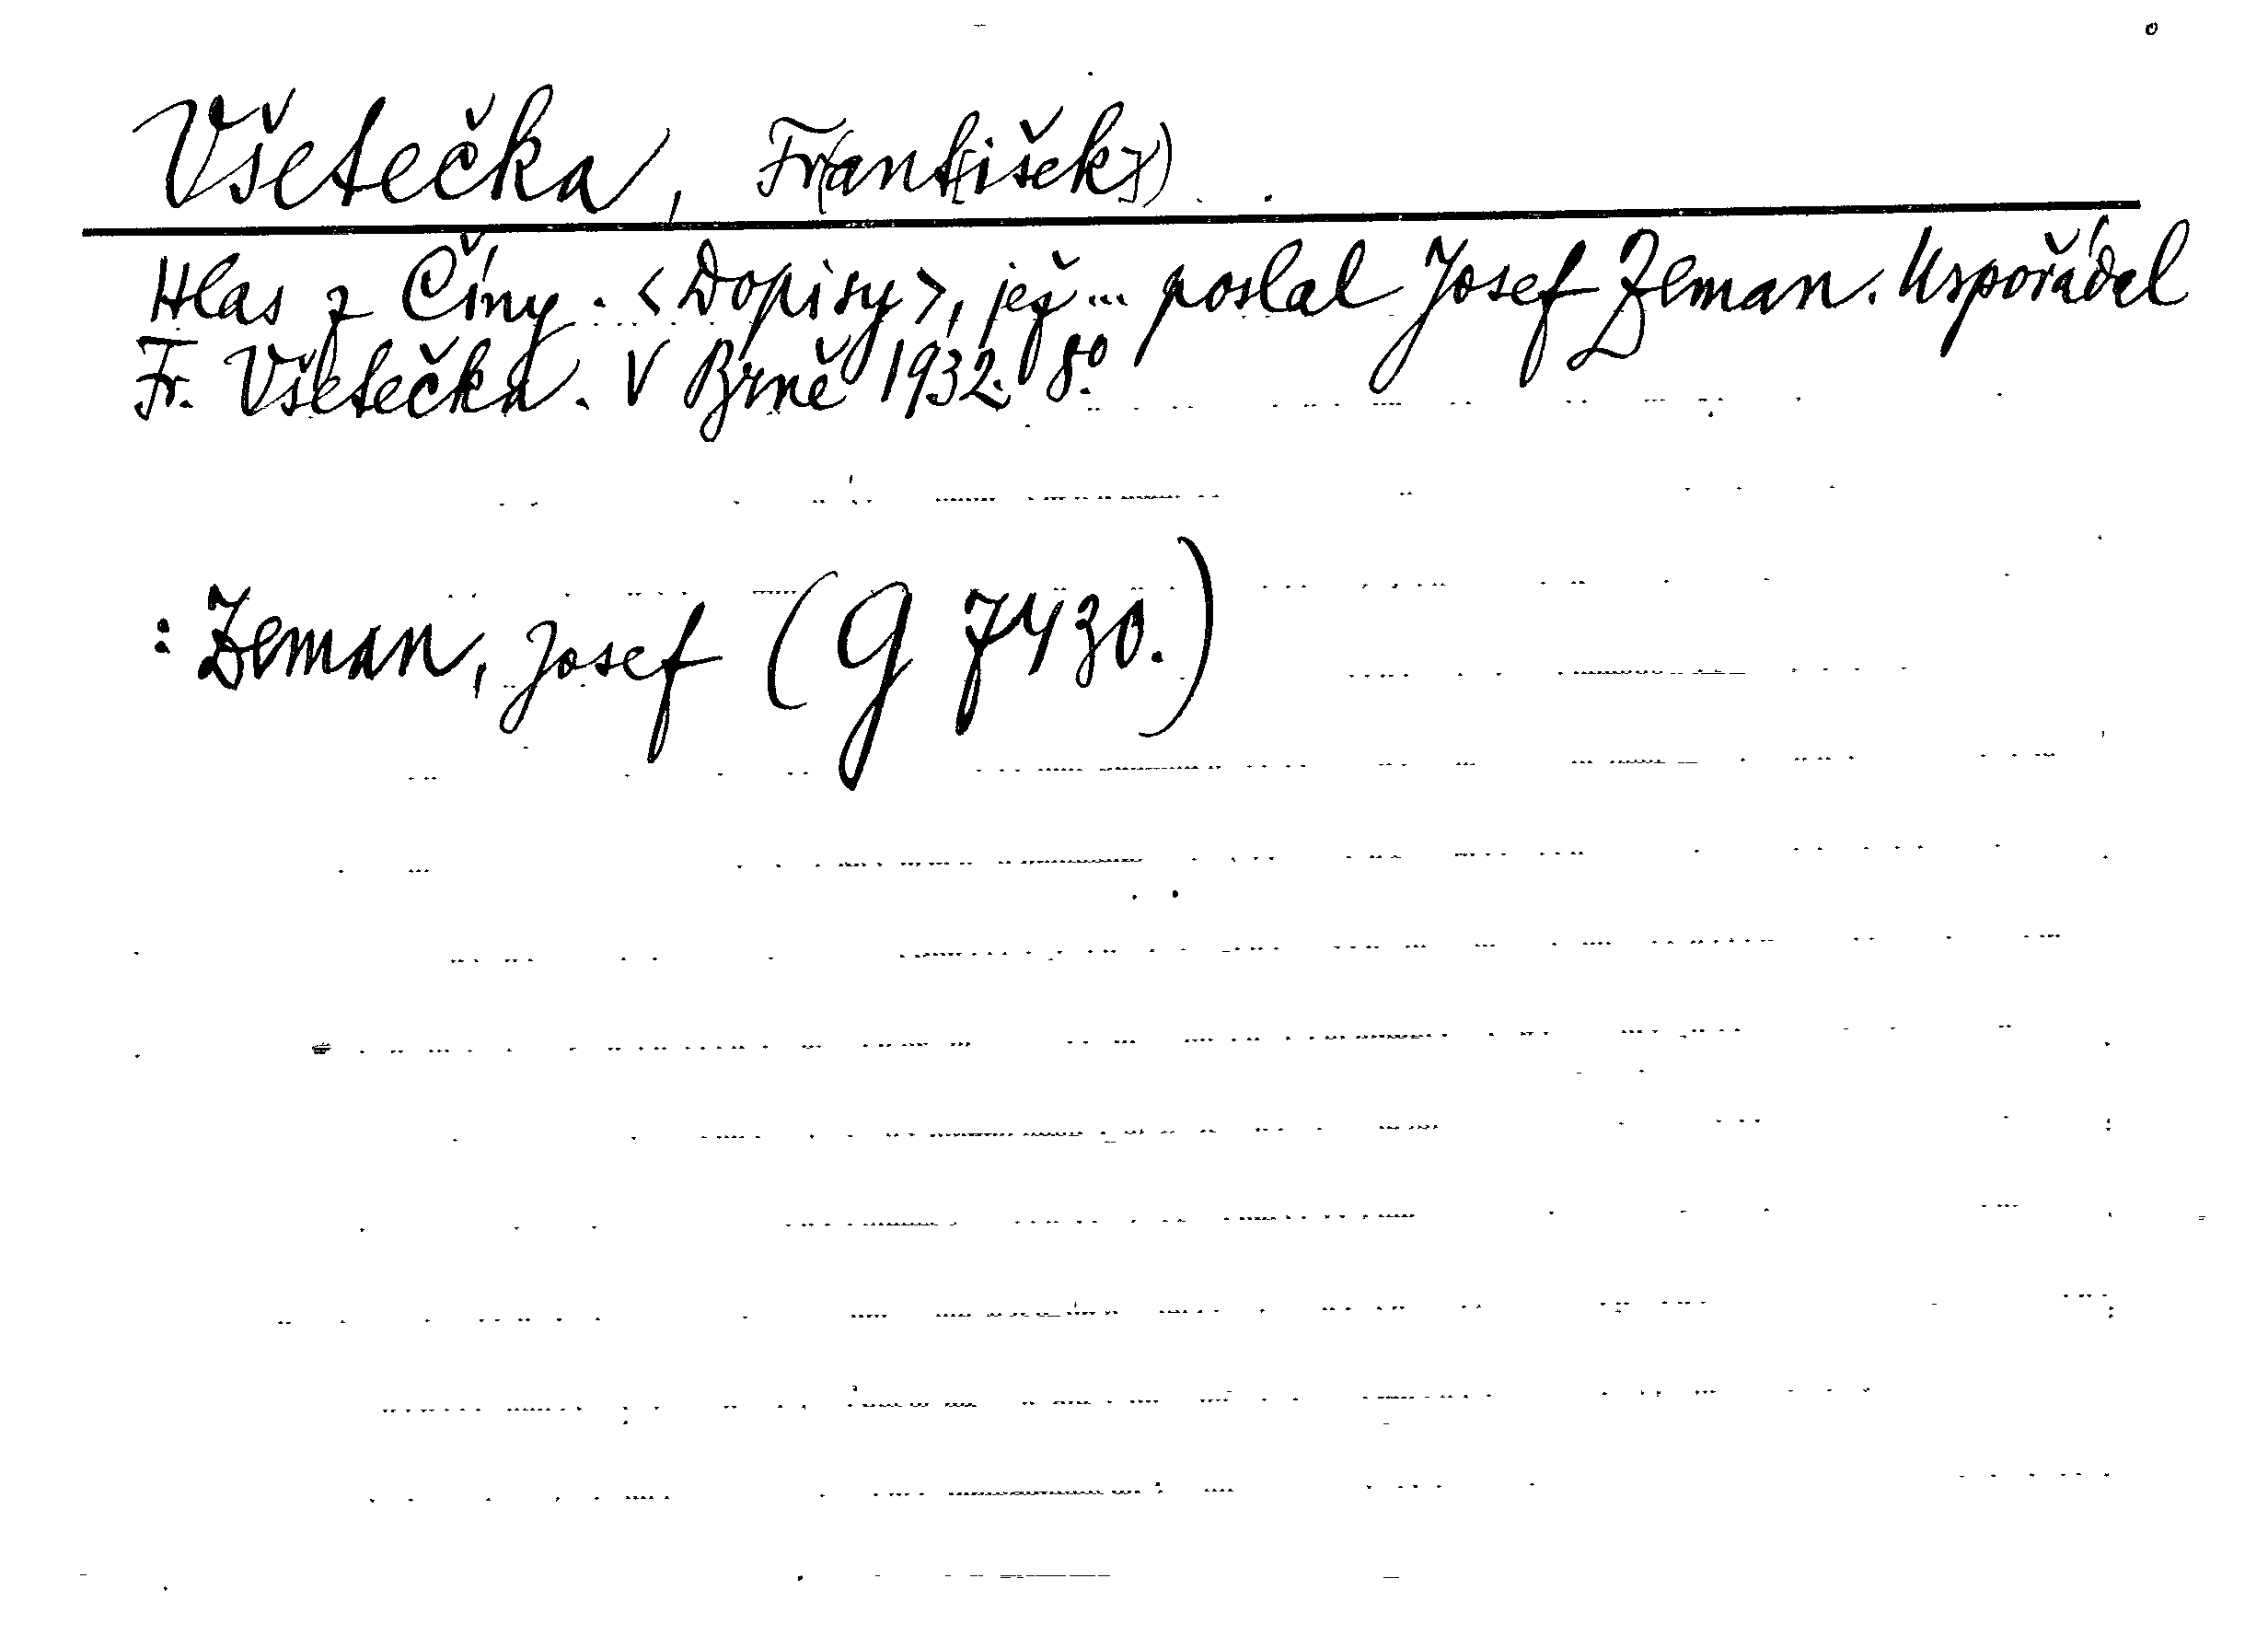 Všetečka, Fr(ant[išek])
Hlas z Číny. <Dopisy>, jež... poslal Josef Zeman. Uspořádal
Fr. Všetečka. V Brně 1932. 8°.
: Zeman, Josef (G 7430.)